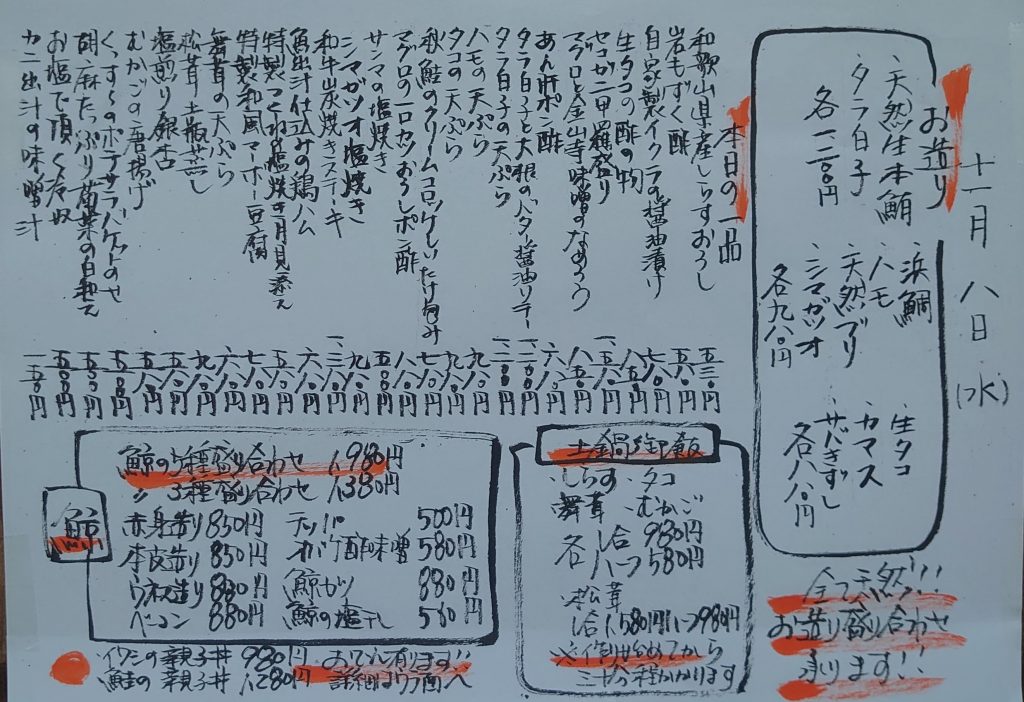 十一月八日(水)
お造り
・天然生本鮪
・タラ白子
各一二〇〇円
・浜鯛
・ハモ
・天然ブリ
・シマガツオ
各九八〇円
・生タコ
・カマス
・サバきずし
各八八〇円
全て天然!!!
お造り盛り合わせ
承ります!!
本日の一品
和歌山県産しらすおろし 五三〇円
岩もずく酢 五八〇円
自家製イクラの醤油漬け
生タコの酢の物
セコガニ甲羅盛り
マグロと金山寺味噌のなめろう
あん肝ポン酢
タラ白子と大根のバター醤油ソテー
タラ白子の天ぷら
ハモの天ぷら
タコの天ぷら
秋鮭のクリームコロッケしいたけ包み
マグロの一口カツおろしポン酢
サンマの塩焼き
シマガツオ塩焼き
和牛炭焼きステーキ
魚出汁仕込みの鶏ハム
特製つくねの塩焼き月見添え
特製和風マーボー豆腐
舞茸の天ぷら
松茸土瓶蒸し
塩煎り銀杏
むかごの唐揚げ
くんすけのポテサラバケットのせ
胡麻たっぷり菊菜の白和え
お塩で頂く冷奴
カニ出汁の味噌汁
土鍋御飯
・しらす ・タコ
・舞茸 ・むかご
各 一合 980円
各 ハーフ 580円
・松茸
一合1,580円 ハーフ980円
※作り始めてから
三十分程かかります
鯨
鯨の5種盛り合わせ 1,980円
〃 3種盛り合わせ 1,380円
赤身造り 850円
本皮造り 850円
うねす造り 880円
ベーコン 880円
テッパ 500円
オバケ酢味噌 580円
鯨カツ 880円
鯨の塩干し 580円
イワシの親子丼 980円
鮭の親子丼 1,280円
おでん有ります!!
詳細はウラ面へ